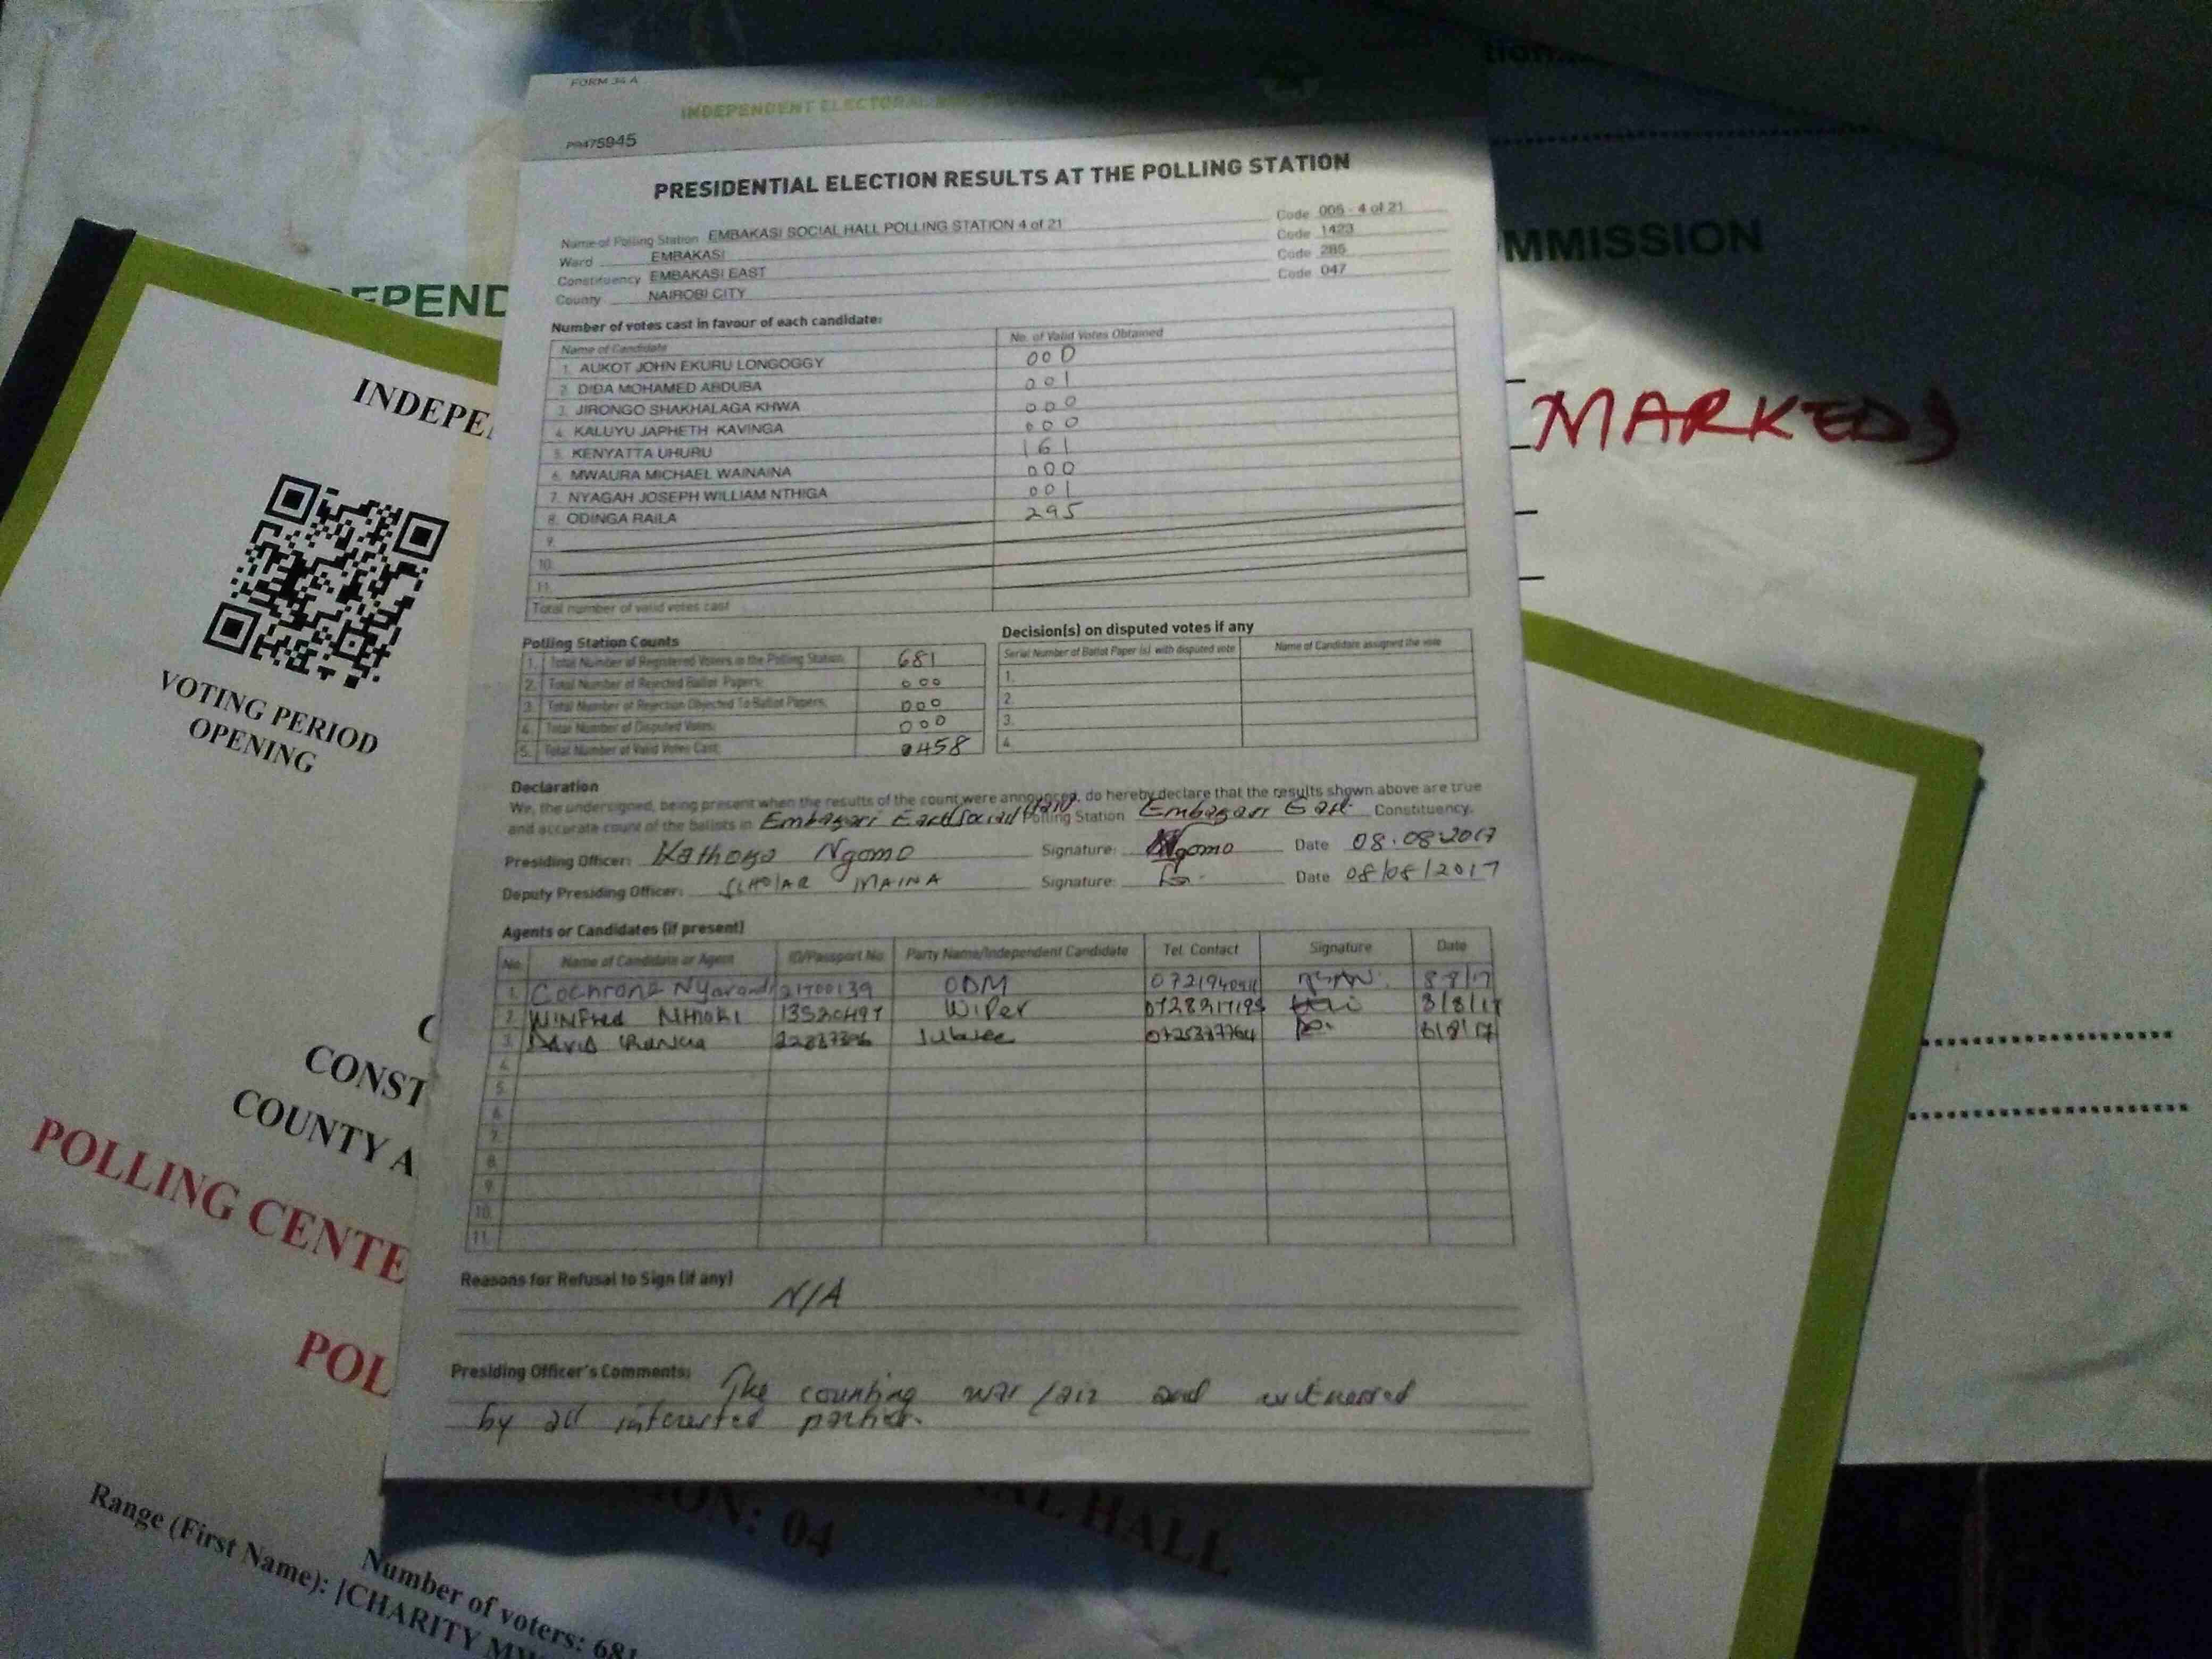 FORM 34 A
INDEPENDENT ELECTORAL
PR475945
PRESIDENTIAL ELECTION RESULTS AT THE POLLING STATION
Name of Polling Station EMBAKASI SOCIAL HALL POLLING STATION 4 of 21 Code 005 - 4 of 21
Ward EMBAKASI Code 1423
Constituency EMBAKASI EAST Code 285
County NAIROBI CITY Code 047
Number of votes cast in favour of each candidate:
Name of Candidate No. of Valid Votes Obtained
1. AUKOT JOHN EKURU LONGOGGY 000
2. DIDA MOHAMED ABDUBA 001
3. JIRONGO SHAKHALAGA KHWA 000
4. KALUYU JAPHETH KAVINGA 000
5. KENYATTA UHURU 161
6. MWAURA MICHAEL WAINAINA 000
7. NYAGAH JOSEPH WILLIAM NTHIGA 001
8. ODINGA RAILA 295
9.
10.
11.
Total number of valid votes cast
Polling Station Counts
1. Total Number of Registered Voters in the Polling Station 681
2. Total Number of Rejected Ballot Papers: 000
3. Total Number of Rejection Objected To Ballot Papers: 000
4. Total Number of Disputed Votes: 000
5. Total Number of Valid Votes Cast: 0458
Decision(s) on disputed votes if any
Serial Number of Ballot Paper (s) with disputed vote Name of Candidate assigned the vote
1.
2.
3.
4.
Declaration
We, the undersigned, being present when the results of the count were announced, do hereby declare that the results shown above are true
and accurate count of the ballots in Embakasi East (Social Hall) Polling Station Embakasi East Constituency.
Presiding Officer: Kathoka Ngomo Signature: Ngomo Date 08.08.2017
Deputy Presiding Officer: SCHOLAR MAINA Signature: Date 08/08/2017
Agents or Candidates (if present)
No. Name of Candidate or Agent ID/Passport No. Party Name/Independent Candidate Tel. Contact Signature Date
1. Cochrane 21700139 ODM 8-8/17
2. WINFred Wiper 8/8/17
3. DAVID Jubilee 8/8/17
4.
5.
6.
7.
8.
9.
10.
11.
Reasons for Refusal to Sign (if any)
N/A
Presiding Officer's Comments: The counting was fair and witnessed
by all interested parties.
EPEND
INDEPE
VOTING PERIOD
OPENING
CONST
COUNTY A
POLLING CENTE
POL
Number of voters: 681
Range (First Name): [CHARITY
ION: 04
AL HALL
MMISSION
MARKED